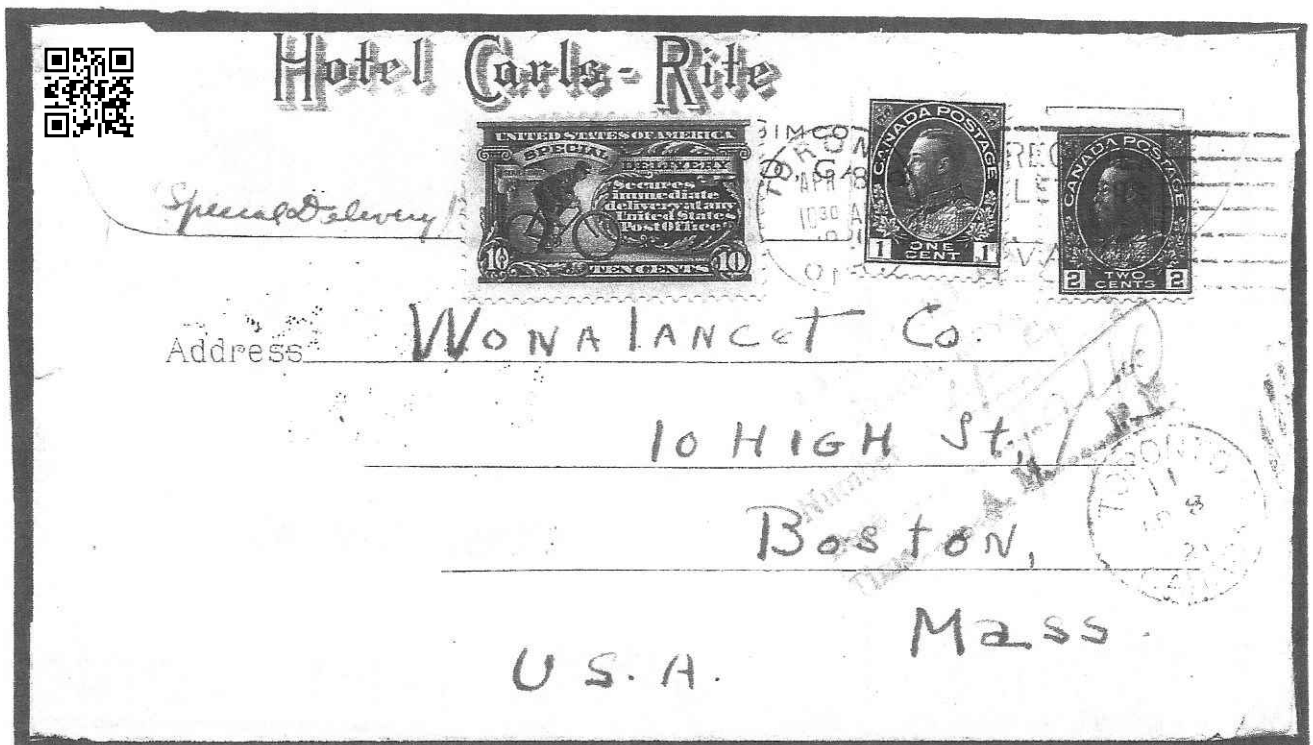 Hotel Carls-Rite
Special Delivery
UNITED STATES OF AMERICA
SPECIAL DELIVERY
Secures
immediate
delivery at any
United States
Post Office
10 TEN CENTS 10
SIMCO
TORON
APR 8
1030 A
CANADA POSTAGE
1 ONE CENT 1
CANADA POSTAGE
2 TWO CENTS 2
Address WONALANCET Co.
10 HIGH St,
Boston,
Mass.
U.S.A.
A.M.
TORONTO
11
8
21